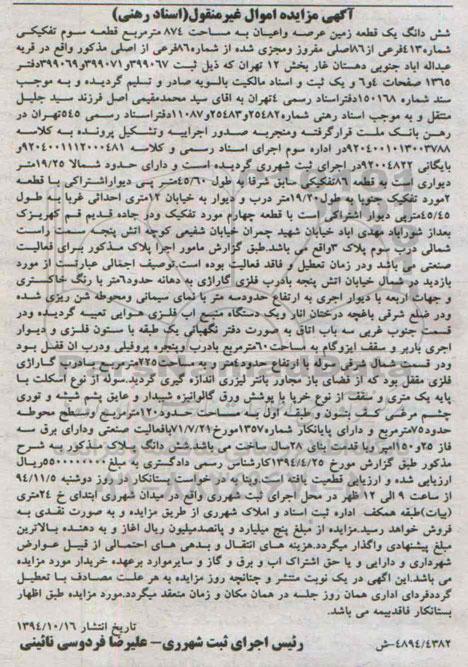 آگهی مزایده اموال غیرمنقول(اسناد رهنی)
شش دانگ یک قطعه زمین عرصه واعیان به مساحت ۸۷۴ مترمربع قطعه سوم تفکیکی
شماره۴۱۳فرعی از۸۶اصلی مفروز ومجزی شده از شماره۸۶فرعی از اصلی مذکور واقع در قریه
عبداله اباد جنوبی دهستان غار بخش ۱۲ تهران که ذیل ثبت ۳۹۹۰۶۷و۳۹۹۰۷۱و۳۹۹۰۶۹دفتر
۱۳۶۵ صفحات ۴و۶ و یک ثبت و اسناد مالکیت بالسویه صادر و تسلیم گردیده و به موجب
سند شماره ۱۵۰۱۶۸دفتراسناد رسمی ۴تهران به اقای سید محمدمقیمی اصل فرزند سید جلیل
منتقل و به موجب اسناد رهنی شماره۲۵۴۸۲و۲۵۴۸۳و۱۱۰۸۷دفتراسناد رسمی ۵۴۵تهران در
رهن بانک ملت قرارگرفته ومنجربه صدور اجراییه وتشکیل پرونده به کلاسه
۹۲۰۴۰۰۱۰۱۳۰۰۳۷۸۸در اداره سوم اجرای اسناد رسمی و کلاسه ۹۲۰۴۰۰۱۱۱۲۰۰۰۴۸۱و
بایگانی ۹۲۰۰۴۸۲۲در اجرای ثبت شهرری گردیده است و دارای حدود شمالا ۱۹/۲۵متر
دیواری است به قطعه ۸۶تفکیکی سابق شرقا به طول ۴۵/۶۰متر پی دیواراشتراکی با قطعه
۲مورد تفکیک جنوبا به طول۱۹/۲۰متر درب و دیوار به خیابان ۱۲متری احداثی غربا به طول
۴۵/۴۵مترپی دیوار اشتراکی است با قطعه چهارم مورد تفکیک ودر جاده قدیم قم کهریزک
بعداز شورآباد مهدی آباد خیابان شهید چمران خیابان شفیعی کوچه اتش پنجه سمت راست
شمالی درب سوم پلاک ۳واقع می باشد.طبق گزارش مامور اجرا پلاک مذکور برای فعالیت
صنعتی می باشد ودر زمان تعطیل و فاقد فعالیت بوده است.توصیف اجمالی عبارتست از مورد
بازدید در شمال خیابان اتش پنجه بادرب فلزی گاراژی به دهانه حدود۶متر با رنگ خاکستری
و جهات اربعه با دیوار اجری به ارتفاع حدودسه متر با نمای سیمانی ومحوطه شن ریزی شده
ودر ضلع شرقی باغچه درختان انار ویک دستگاه منبع اب فلزی هوایی تعبیه گردیده ودر
قسمت جنوب غربی سه باب اتاق به صورت دفتر نگهبانی یک طبقه با ستون فلزی و دیوار
اجری باربر و سقف ایزوگام به مساحت۶۰مترمربع بادرب وپنجره پروفیلی ودرب ان قفل بود
ودر قسمت شمال شرقی سوله با ارتفاع حدود۶متر به مساحت۲۲۵مترمربع بادرب گاراژی
فلزی مقفل بود که از فضای باز مجاور بامتر لیزری اندازه گیری گردید.سوله از نوع اسکلت با
پایه یک متری و سقف از نوع خرپا با پوشش ورق گالوانیزه شیبدار و عایق پشم شیشه و توری
چشم مرغی کف بتون وطبقه اول به مساحت حدود۱۲۰مترمربع و سطح محوطه
حدود۷۵مترمربع و دارای پایانکار شماره۱۳۵۷مورخ۷۱/۷/۲۱بافعالیت صنعتی ودارای برق سه
فاز ۲۵و۱۱۰امپر وبا قدمت بنای ۲۸سال ساخت می باشد.شش دانگ پلاک مذکور به شرح
مذکور طبق گزارش مورخ ۱۳۹۴/۴/۲۵کارشناس رسمی دادگستری به مبلغ۵۵۰۰۰۰۰۰۰۰ریال
ارزیابی شده و ارزیابی قطعیت یافته است.وبنا به درخواست بستانکار در روز دوشنبه ۹۴/۱۱/۵
از ساعت ۹ الی ۱۲ ظهر در محل اجرای ثبت شهرری واقع در میدان شهرری ابتدای خ ۲۴متری
(بیات)طبقه همکف اداره ثبت اسناد و املاک شهرری از طریق مزایده و به صورت نقدی به
فروش خواهد رسید.مزایده از مبلغ پنج میلیارد و پانصدمیلیون ریال اغاز و به دهنده بالاترین
مبلغ پیشنهادی واگذار میگردد.هزینه های انتقال و بدهی های احتمالی از قبیل عوارض
شهرداری و دارایی و یا حق اشتراک اب و برق و گاز و سایرموارد برعهده خریدار مورد مزایده
می باشد.این اگهی در یک نوبت منتشر و چنانچه روز مزایده به هر علت مصادف با تعطیل
گرددفردای اداری همان روز جلسه در همان مکان و زمان منعقد میگردد.مورد مزایده طبق اظهار
بستانکار فاقدبیمه می باشد.
تاریخ انتشار ۱۳۹۴/۱۰/۱۶
۴۸۹۴/۴۳۸۲-ش رئیس اجرای ثبت شهرری- علیرضا فردوسی نائینی